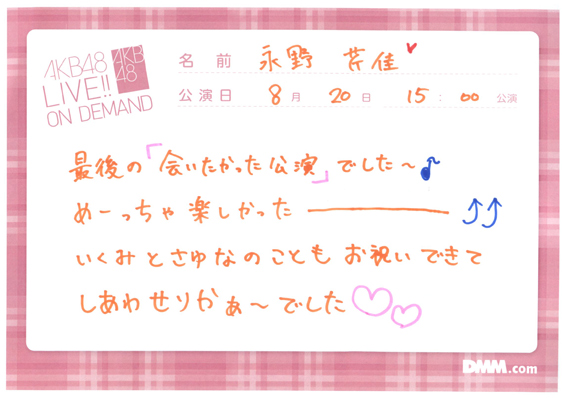 AKB48
LIVE!!
ON DEMAND
AKB
48
名前 永野 芹佳
公演日 8月 20日 15:00 公演
最後の「会いたかった公演」でした〜
めーっちゃ楽しかった———
いくみとさゆなのこともお祝いできて
しあわせりかぁ〜でした
DMM.com